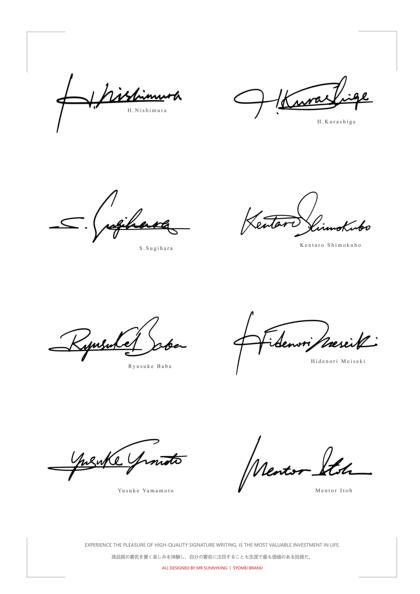 H.Nishimura
H.Nishimura
H.Kurashige
H.Kurashige
S.Sugihara
S.Sugihara
Kentaro Shimokubo
Kentaro Shimokubo
Ryusuke Baba
Ryusuke Baba
Hidenori Meiseki
Hidenori Meiseki
Yusuke Yamamoto
Yusuke Yamamoto
Mentor Itoh
Mentor Itoh
EXPERIENCE THE PLEASURE OF HIGH-QUALITY SIGNATURE WRITING, IS THE MOST VALUABLE INVESTMENT IN LIFE.
高品質の署名を書く楽しみを体験し、自分の署名に注目することも生涯で最も価値のある投資だ。
ALL DESIGNED BY MR SUNNYKING | SYOMEI BRAND